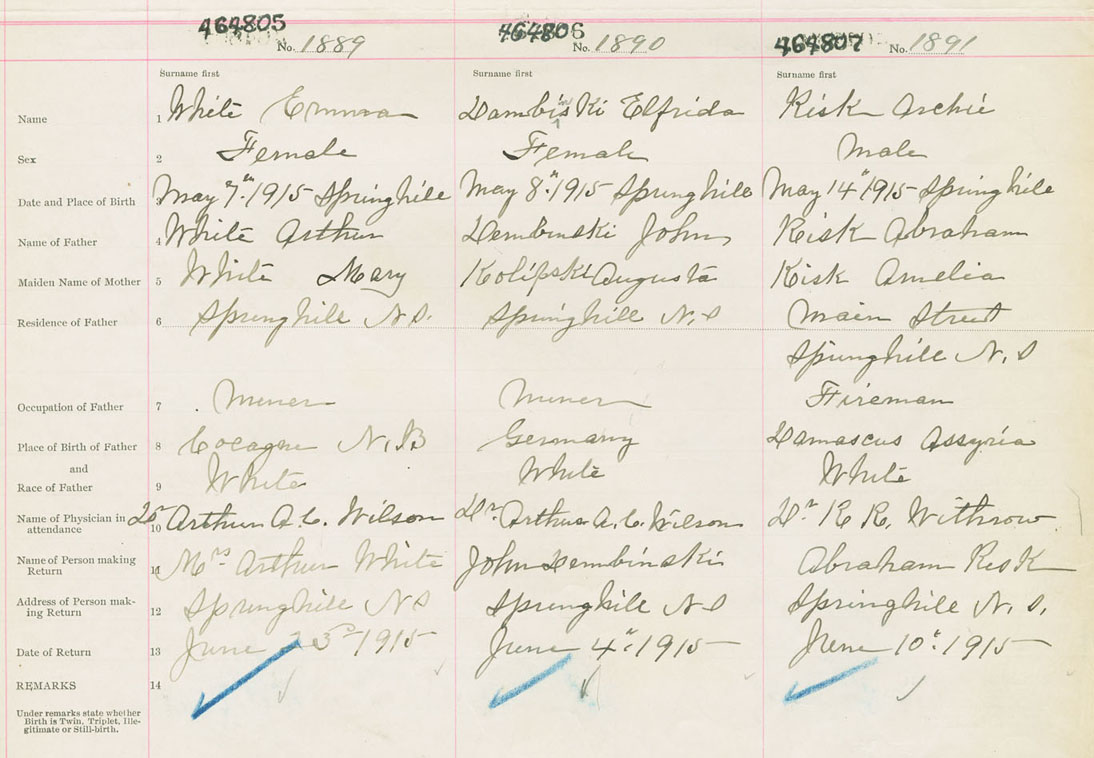 464805 No. 1889 464806 No. 1890 464807 No. 1891
Surname first Surname first Surname first
Name 1 White Emma Dambinski Elfrida Risk Archie
Sex 2 Female Female Male
Date and Place of Birth 3 May 7th 1915 Springhill May 8th 1915 Springhill May 14th 1915 Springhill
Name of Father 4 White Arthur Dembinski John Risk Abraham
Maiden Name of Mother 5 White Mary Kolipski Augusta Risk Amelia
Residence of Father 6 Springhill N.S. Springhill N.S Main Street
Springhill N.S
Occupation of Father 7 Miner Miner Fireman
Place of Birth of Father 8 Cocagne N.B Germany Damascus Assyria
and
Race of Father 9 White White White
Name of Physician in attendance 10 Dr Arthur A.C. Wilson Dr. Arthur A.C. Wilson Dr R R. Withrow
Name of Person making Return 11 Mrs Arthur White John Dembinski Abraham Risk
Address of Person making Return 12 Springhill N S Springhill N S Springhill N.S.
Date of Return 13 June 3rd 1915 June 4th 1915 June 10th 1915
REMARKS 14
Under remarks state whether
Birth is Twin, Triplet, Ille-
gitimate or Still-birth.